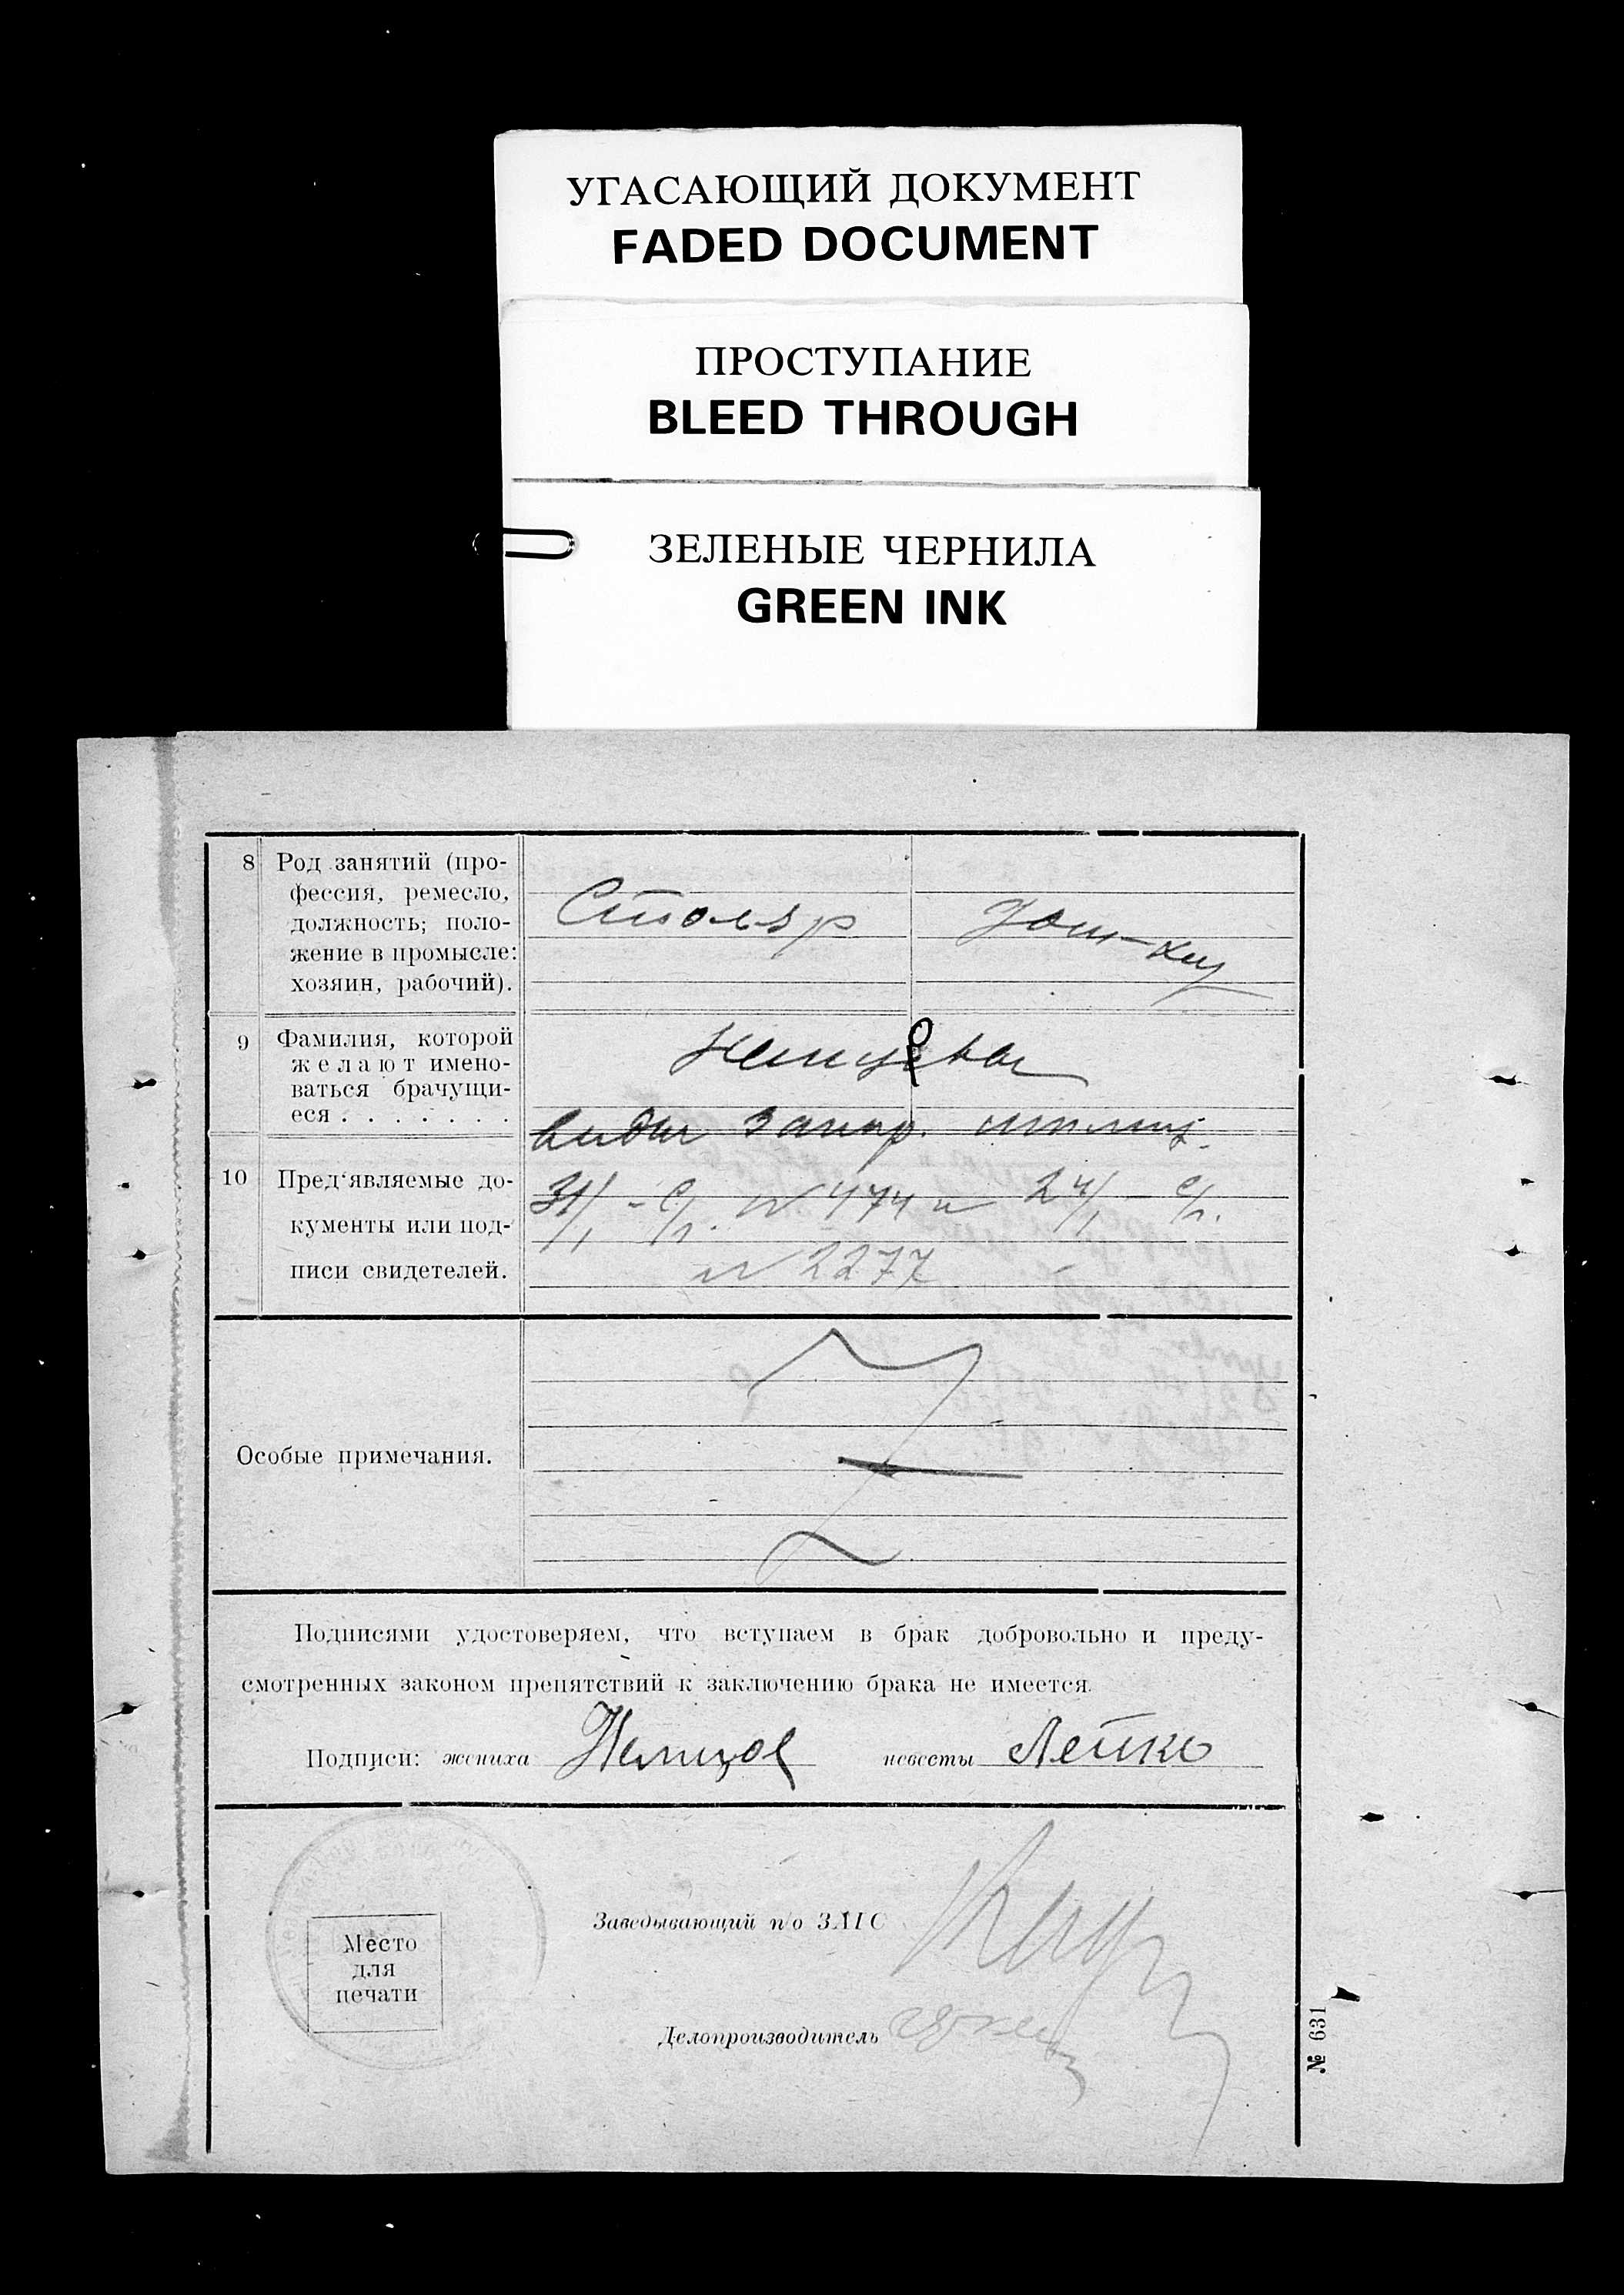 УГАСАЮЩИЙ ДОКУМЕНТ
FADED DOCUMENT
ПРОСТУПАНИЕ
BLEED THROUGH
ЗЕЛЕНЫЕ ЧЕРНИЛА
GREEN INK
8 Род занятий (про-
фессия, ремесло,
должность; поло-
жение в промысле:
хозяин, рабочий).
Столяр
Дом-хоз
9 Фамилия, которой
желают имено-
ваться брачущи-
еся . . . . . . .
Немцовы
10 Пред'являемые до-
кументы или под-
писи свидетелей.
виды
31/1 - с/г. № 474 и 24/1 - с/г.
№ 2277
Особые примечания.
Подписями удостоверяем, что вступаем в брак добровольно и преду-
смотренных законом препятствий к заключению брака не имеется.
Подписи: жениха Немцов невесты Летко
Заведывающий п/о ЗАГС
Место
для
печати
Делопроизводитель
№ 631